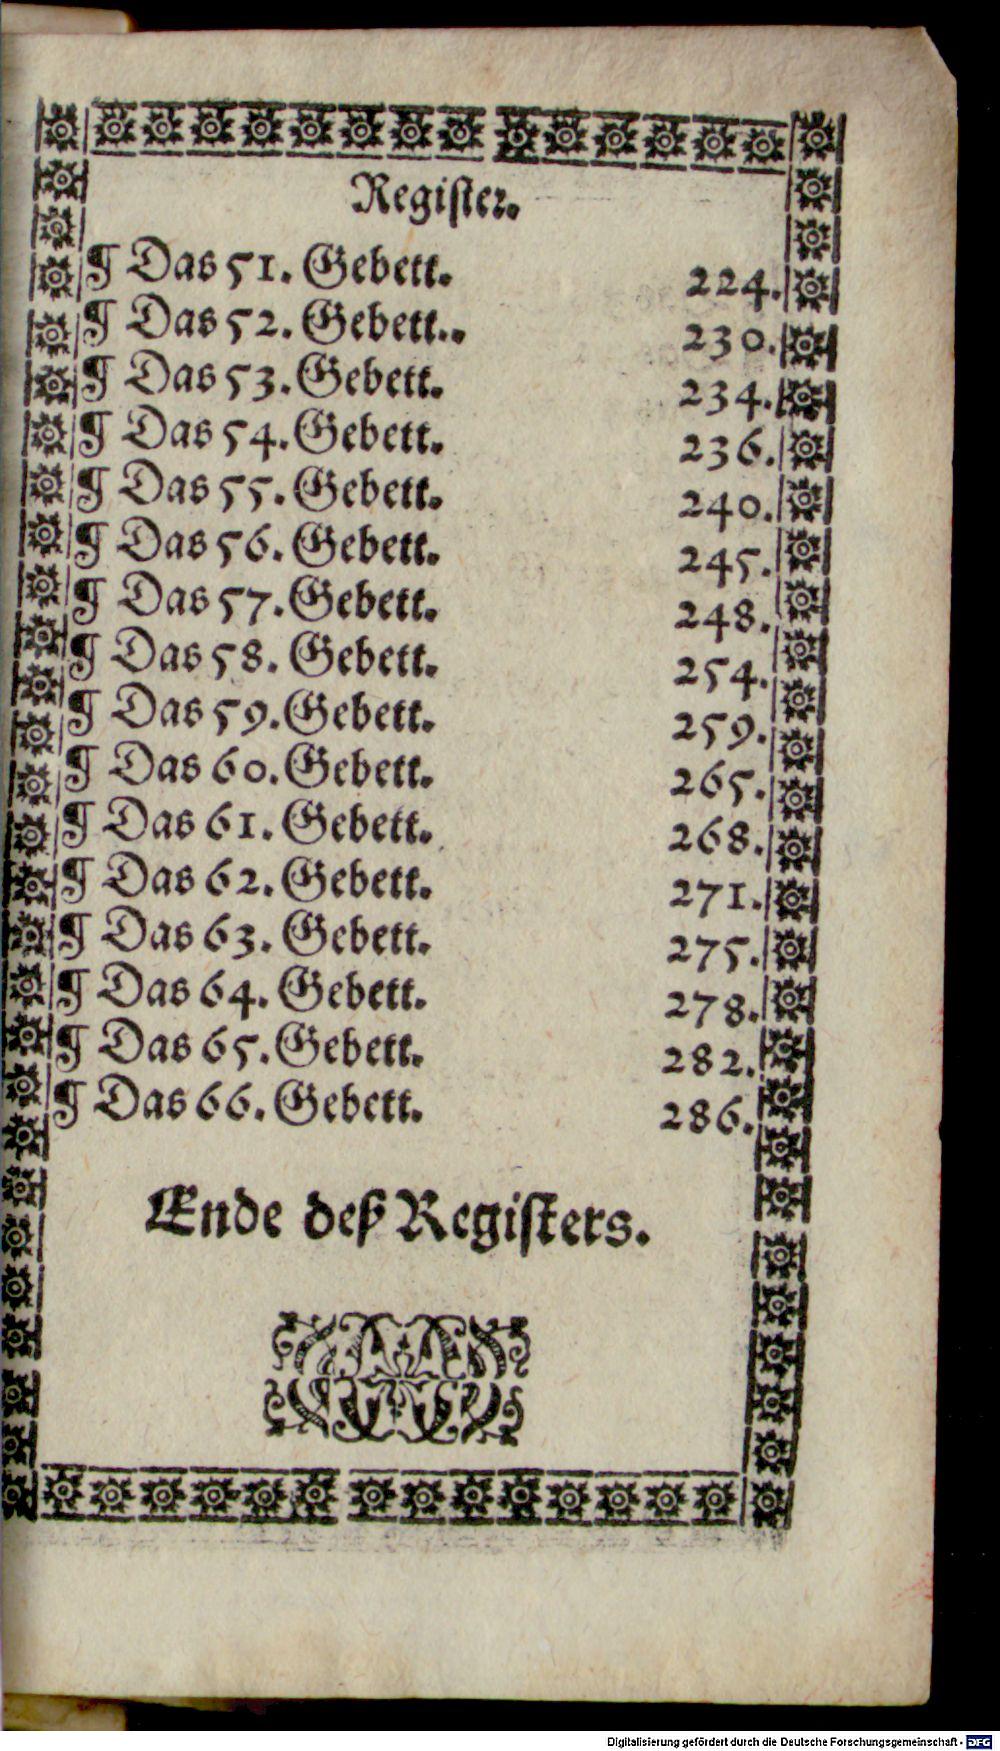 Regiſter.
¶ Das 51. Gebett. 224.
¶ Das 52. Gebett.. 230.
¶ Das 53. Gebett. 234.
¶ Das 54. Gebett. 236.
¶ Das 55. Gebett. 240.
¶ Das 56. Gebett. 245.
¶ Das 57. Gebett. 248.
¶ Das 58. Gebett. 254.
¶ Das 59. Gebett. 259.
¶ Das 60. Gebett. 265.
¶ Das 61. Gebett. 268.
¶ Das 62. Gebett. 271.
¶ Das 63. Gebett. 275.
¶ Das 64. Gebett. 278.
¶ Das 65. Gebett. 282.
¶ Das 66. Gebett. 286.
Ende deß Regiſters.
Digitalisierung gefördert durch die Deutsche Forschungsgemeinschaft - DFG